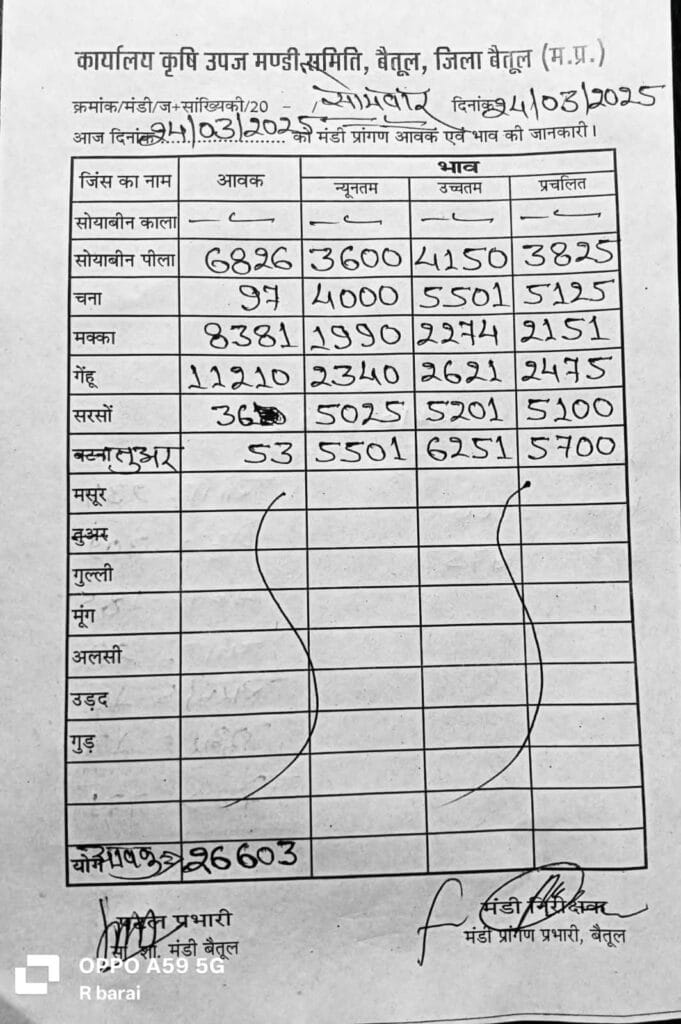 कार्यालय कृषि उपज मण्डी समिति, बैतूल, जिला बैतूल (म.प्र.)
क्रमांक/मंडी/ज+सांख्यिकी/20 - / सोमवार दिनांक 24/03/2025
आज दिनांक 24/03/2025 को मंडी प्रांगण आवक एवं भाव की जानकारी।
जिंस का नाम आवक भाव
न्यूनतम उच्चतम प्रचलित
सोयाबीन काला - - - -
सोयाबीन पीला 6826 3600 4150 3825
चना 97 4000 5501 5125
मक्का 8381 1990 2274 2151
गेंहू 11210 2340 2621 2475
सरसों 36 5025 5201 5100
बटना तुअर 53 5501 6251 5700
मसूर
तुअर
गुल्ली
मूंग
अलसी
उड़द
गुड़
योग 26603
मंडी निरीक्षक
प्रभारी
मंडी प्रांगण प्रभारी, बैतूल
मंडी बैतूल
OPPO A59 5G
R barai